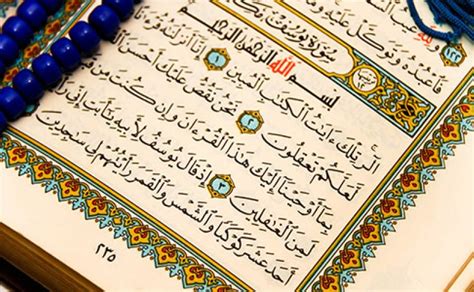 فَاعْبُدْهُ وَتَوَكَّلْ عَلَيْهِ وَمَا
١٢٣
سُورَةُ يُوسُفَ مَكِّيَّة
بِسْمِ اللَّهِ الرَّحْمَٰنِ الرَّحِيمِ
الٓر تِلْكَ ءَايَٰتُ الْكِتَٰبِ الْمُبِينِ ١ إِنَّا أَنزَلْنَٰهُ قُرْ
لَّعَلَّكُمْ تَعْقِلُونَ ٢ نَحْنُ نَقُصُّ عَلَيْكَ أَحْسَنَ
بِمَا أَوْحَيْنَا إِلَيْكَ هَٰذَا الْقُرْءَانَ وَإِن كُنتَ مِن
لَمِنَ الْغَٰفِلِينَ ٣ إِذْ قَالَ يُوسُفُ لِأَبِيهِ يَٰأَبَتِ إِنِّي
أَحَدَ عَشَرَ كَوْكَبًا وَالشَّمْسَ وَالْقَمَرَ رَأَيْتُهُمْ لِي سَٰجِدِينَ
٢٣٥